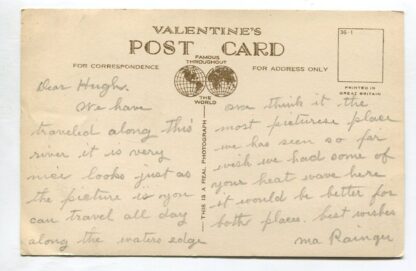 VALENTINE'S
POST CARD
FOR CORRESPONDENCE
FAMOUS
THROUGHOUT
THE
WORLD
FOR ADDRESS ONLY
36-1
PRINTED IN
GREAT BRITAIN
THIS IS A REAL PHOTOGRAPH
Dear Hugh.
We have
traveled along this
river it is very
nice looks just as
the picture is you
can travel all day
along the waters edge
one think it the
most picturese place
we has seen so far
wish we had some of
your heat wave here
it would be better for
both place. best wishes
ma